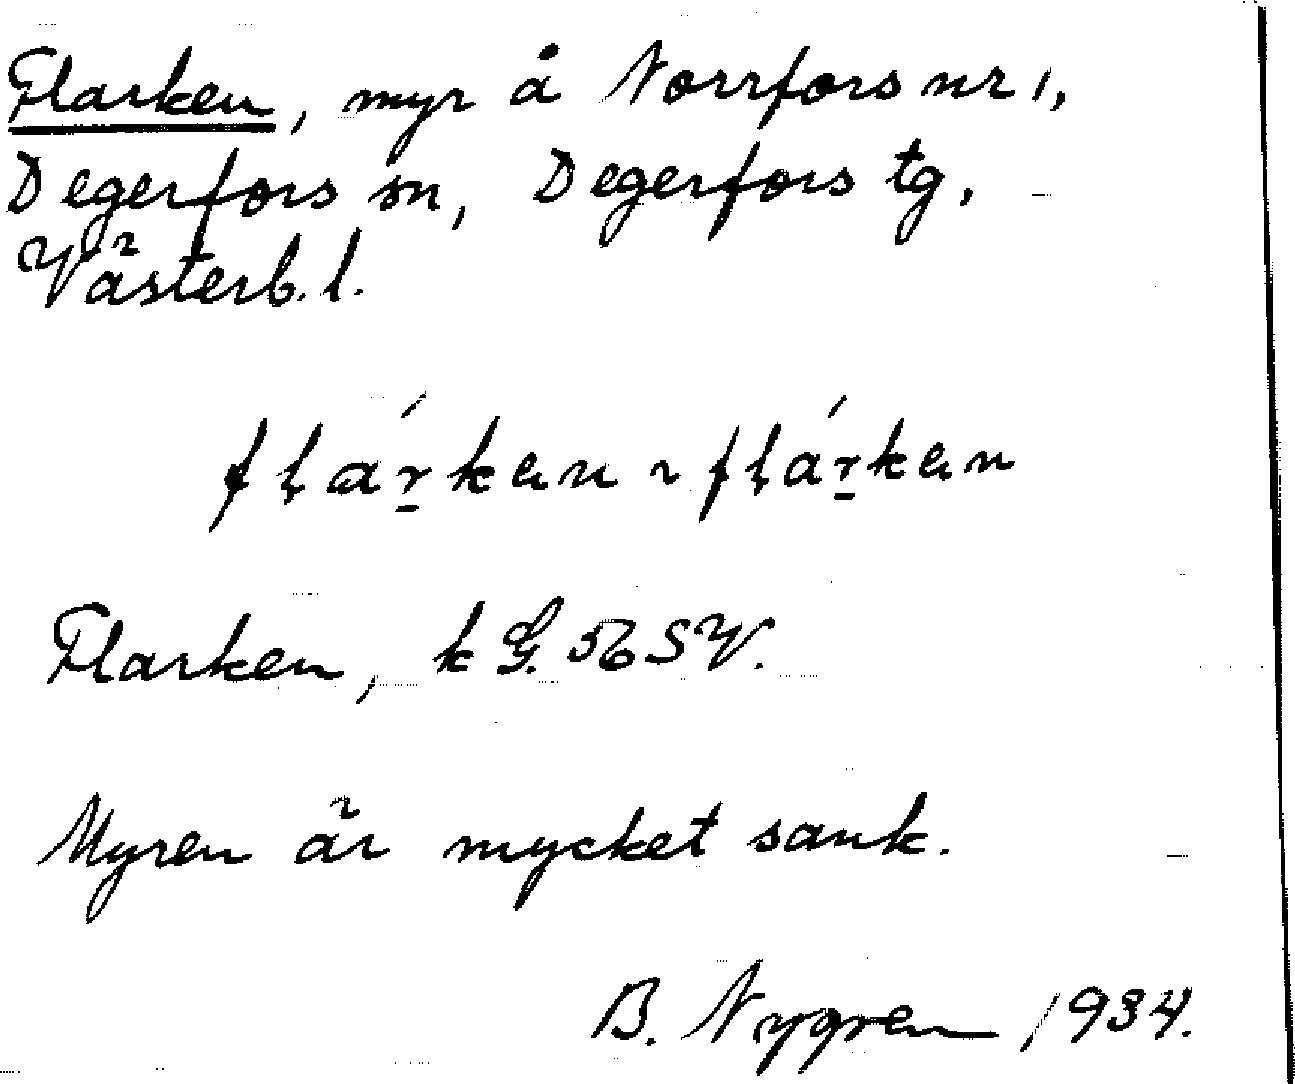 Flarken, myr å Norrfors nr 1,
Degerfors sn, Degerfors tg.
Västerb. l.
fḷáṛkɐn ~ fḷáṛkɐn
Flarken, k G. 56 SV.
Myren är mycket sank.
B. Nygren 1934.